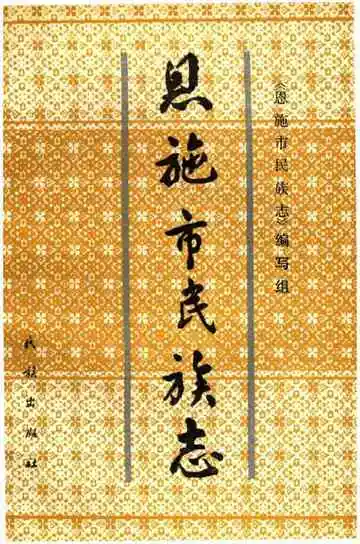 恩施市民族志
《恩施市民族志》编写组
民族出版社